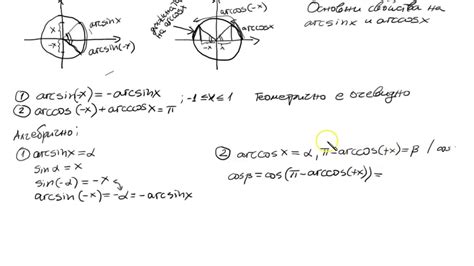 arcsinx
arcsin(-x)
arccos(-x)
на arccosx
arccosx
Основни свойства на
arcsinx и arccosx
① arcsin(-x) = -arcsinx
② arccos(-x)+arccosx = π ; -1 ≤ x ≤ 1 Геометрично е очевидно
Алгебрично:
① arcsinx = α
sinα = x
sin(-α) = -x
arcsin(-x) = -α = -arcsinx
② arccosx = α, π-arccos(+x) = β / cos
cosβ = cos(π-arccos(+x)) =